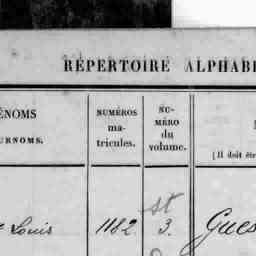 RÉPERTOIRE ALPHAB
ÉNOMS
URNOMS.
NUMÉROS
ma-
tricules.
NU-
MÉRO
du
volume.
[Il doit êtr
Louis
1182
st
3.
Gues